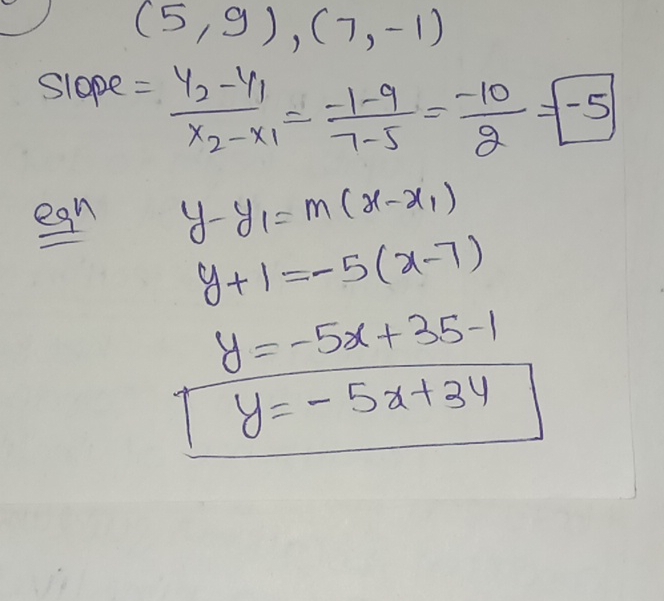 (5,9), (7,-1)
Slope = y₂-y₁/x₂-x₁ = -1-9/7-5 = -10/2 = -5
eqn y-y₁=m(x-x₁)
y+1=-5(x-7)
y=-5x+35-1
y=-5x+34